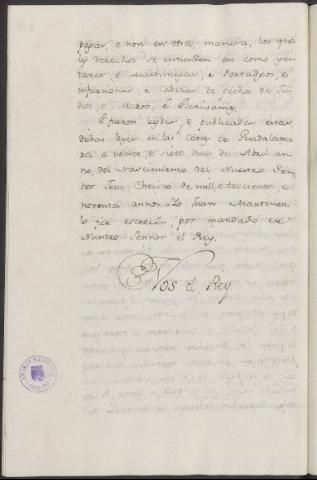 pagar, e non en otra manera, los qua
les derechos se entienden asi como yan
tares, e Martiniegas, e Portadgos, e
infurciones e cabezas de pechos de Ju
dios, e Moros, e Escribanias.
E fueron leydas, e publicadas estas
dichas leyes en las Cortes de Guadalaxa
ra a veinte, e siete dias de Abril an
no, del nascimiento del Nuestro Sen
hor Jesu Christo de mill, e trecientos, e
noventa annos. Yo Juan Martinez
la fice escrebir por mandado de
Nuestro Sennor el Rey.
Nos el Rey